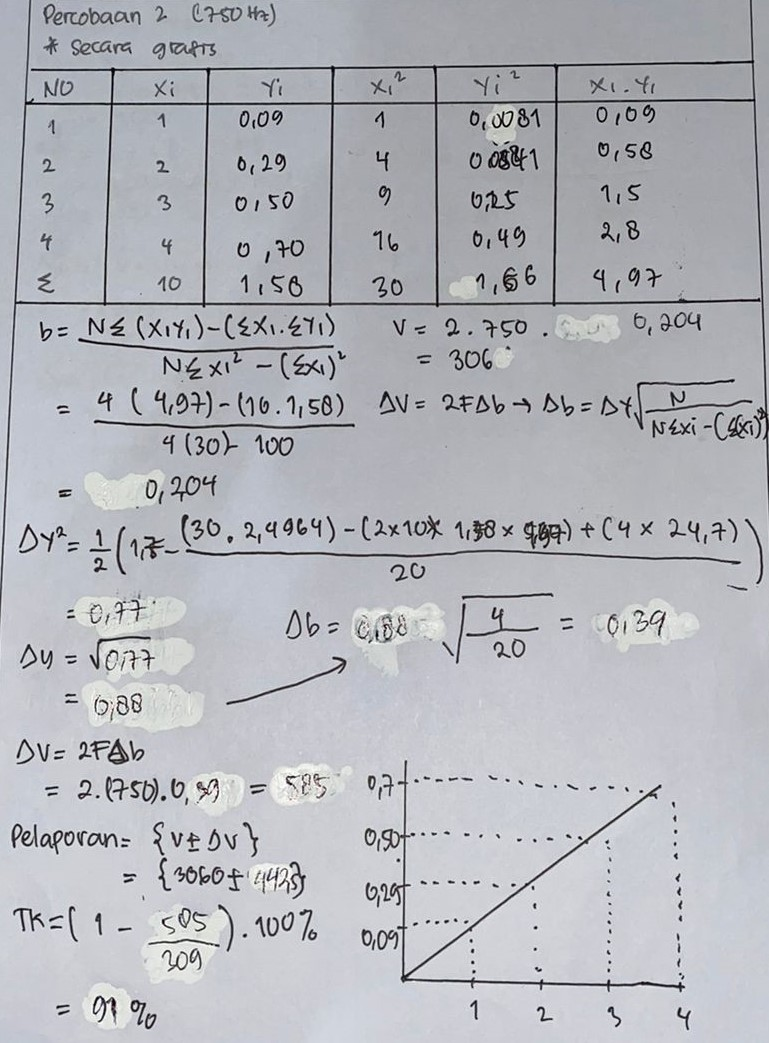 Percobaan 2 (750 Hz)
* Secara grafis
NO Xi Yi Xi² Yi² Xi.Yi
1 1 0,09 1 0,0081 0,09
2 2 0,29 4 0,0841 0,58
3 3 0,50 9 0,25 1,5
4 4 0,70 16 0,49 2,8
Σ 10 1,58 30 4,97
b = NΣ(XiYi) - (ΣXi.ΣYi) / NΣxi² - (Σxi)²
V = 2.750 . 0,204
= 306
= 4 (4,97) - (10.1,58) / 4(30) - 100
ΔV = 2FΔb → Δb = ΔY √ N / NΣxi - (Σ(xi)²
= 0,204
ΔY² = 1/2 ( (30.2,4964) - (2x10x 1,58 x ) + (4 x 24,7) / 20 )
= 0,77
Δb = 0,88 √ 4 / 20 = 0,39
Δy = √0,77
= 0,88
ΔV = 2FΔb
= 2.(750).0,39 = 585
Pelaporan = {V ± ΔV}
= {3060 ± }
TK = (1 - 585 / 309) . 100%
= 91 %
0,7
0,50
0,29
0,09
1 2 3 4